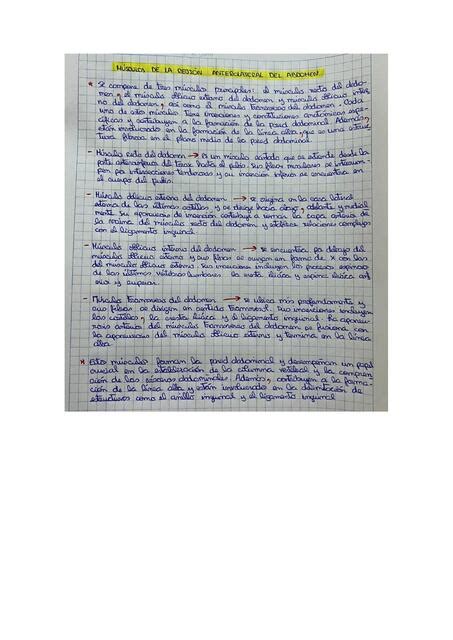 MÚSCULOS DE LA REGIÓN ANTEROLATERAL DEL ABDOMEN
* Se compone de tres músculos principales: el músculo recto del abdo-
men, el músculo oblicuo externo del abdomen y músculo oblicuo inter-
no del abdomen, así como el músculo transverso del abdomen. Cada
uno de estos músculos tiene inserciones y constituciones anatómicas espe-
cíficas y contribuyen a la formación de la pared abdominal. Además,
están involucrados en la formación de la línea alba, que es una estruc
tura fibrosa en el plano medio de la pared abdominal.
- Músculo recto del abdomen → Es un músculo que se extiende desde la
parte del tórax hasta el pubis. Sus fibras musculares se interrum-
pen por intersecciones tendinosas y su inserción inferior se encuentra en
el cuerpo del pubis.
- Músculo oblicuo externo del abdomen → se origina en la cara lateral
externa de las últimas costillas y se dirige hacia abajo, adelante y medial
mente. Su aponeurosis de inserción contribuye a formar la capa anterior de
la vaina del músculo recto del abdomen y establece relaciones complejas
con el ligamento inguinal.
- Músculo oblicuo interno del abdomen → se encuentra por debajo del
músculo oblicuo externo y sus fibras se cruzan en forma de X con las
del músculo oblicuo externo. Sus inserciones incluyen los procesos espinosos
de las últimas vértebras lumbares, la cresta ilíaca y espina ilíaca ant
ero y superior.
- Músculo transverso del abdomen → se ubica más profundamente y
sus fibras se dirigen en sentido transversal. Sus inserciones incluyen
las costillas, la cresta ilíaca y el ligamento inguinal. La aponeu-
rosis anterior del músculo transverso del abdomen se fusiona con
la aponeurosis del músculo oblicuo interno y termina en la línea
alba.
* Estos músculos forman la pared abdominal y desempeñan un papel
crucial en la estabilización de la columna vertebral y la compren
sión de las vísceras abdominales. Además, contribuyen a la forma-
ción de la línea alba y están involucrados en la delimitación de
estructuras como el anillo inguinal y el ligamento inguinal